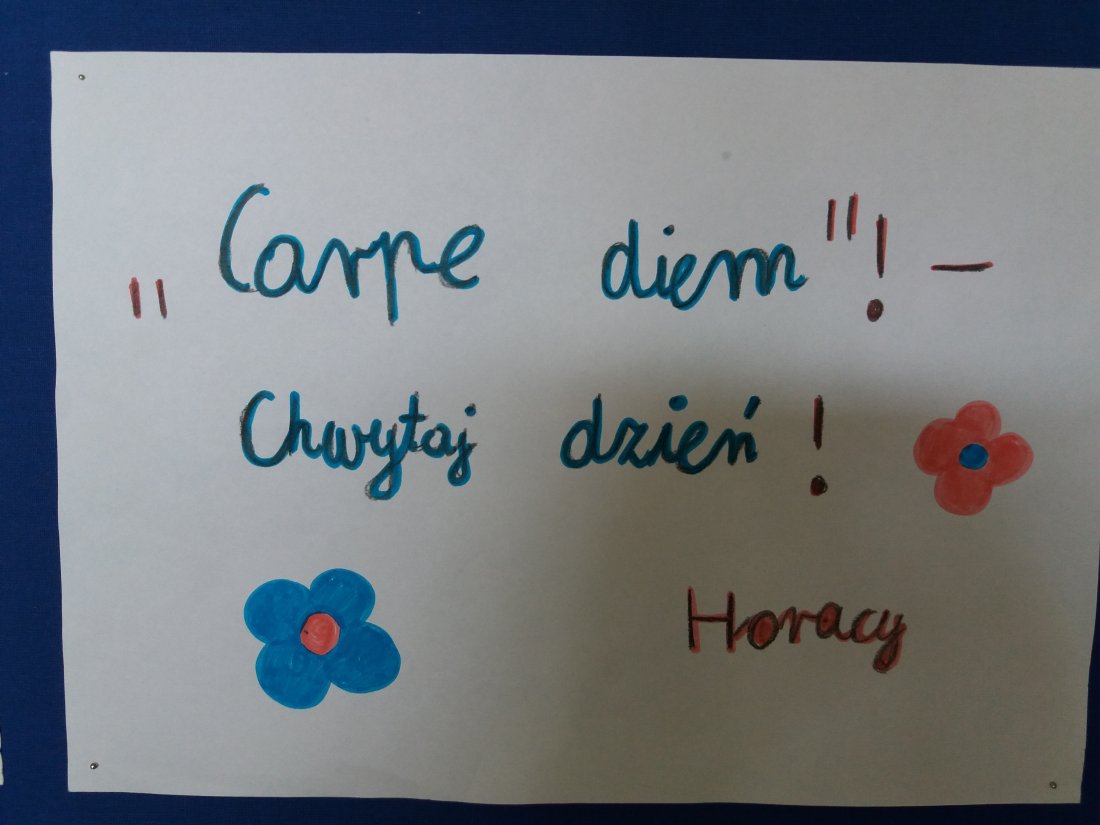 „Carpe diem"! –
Chwytaj dzień!
Horacy